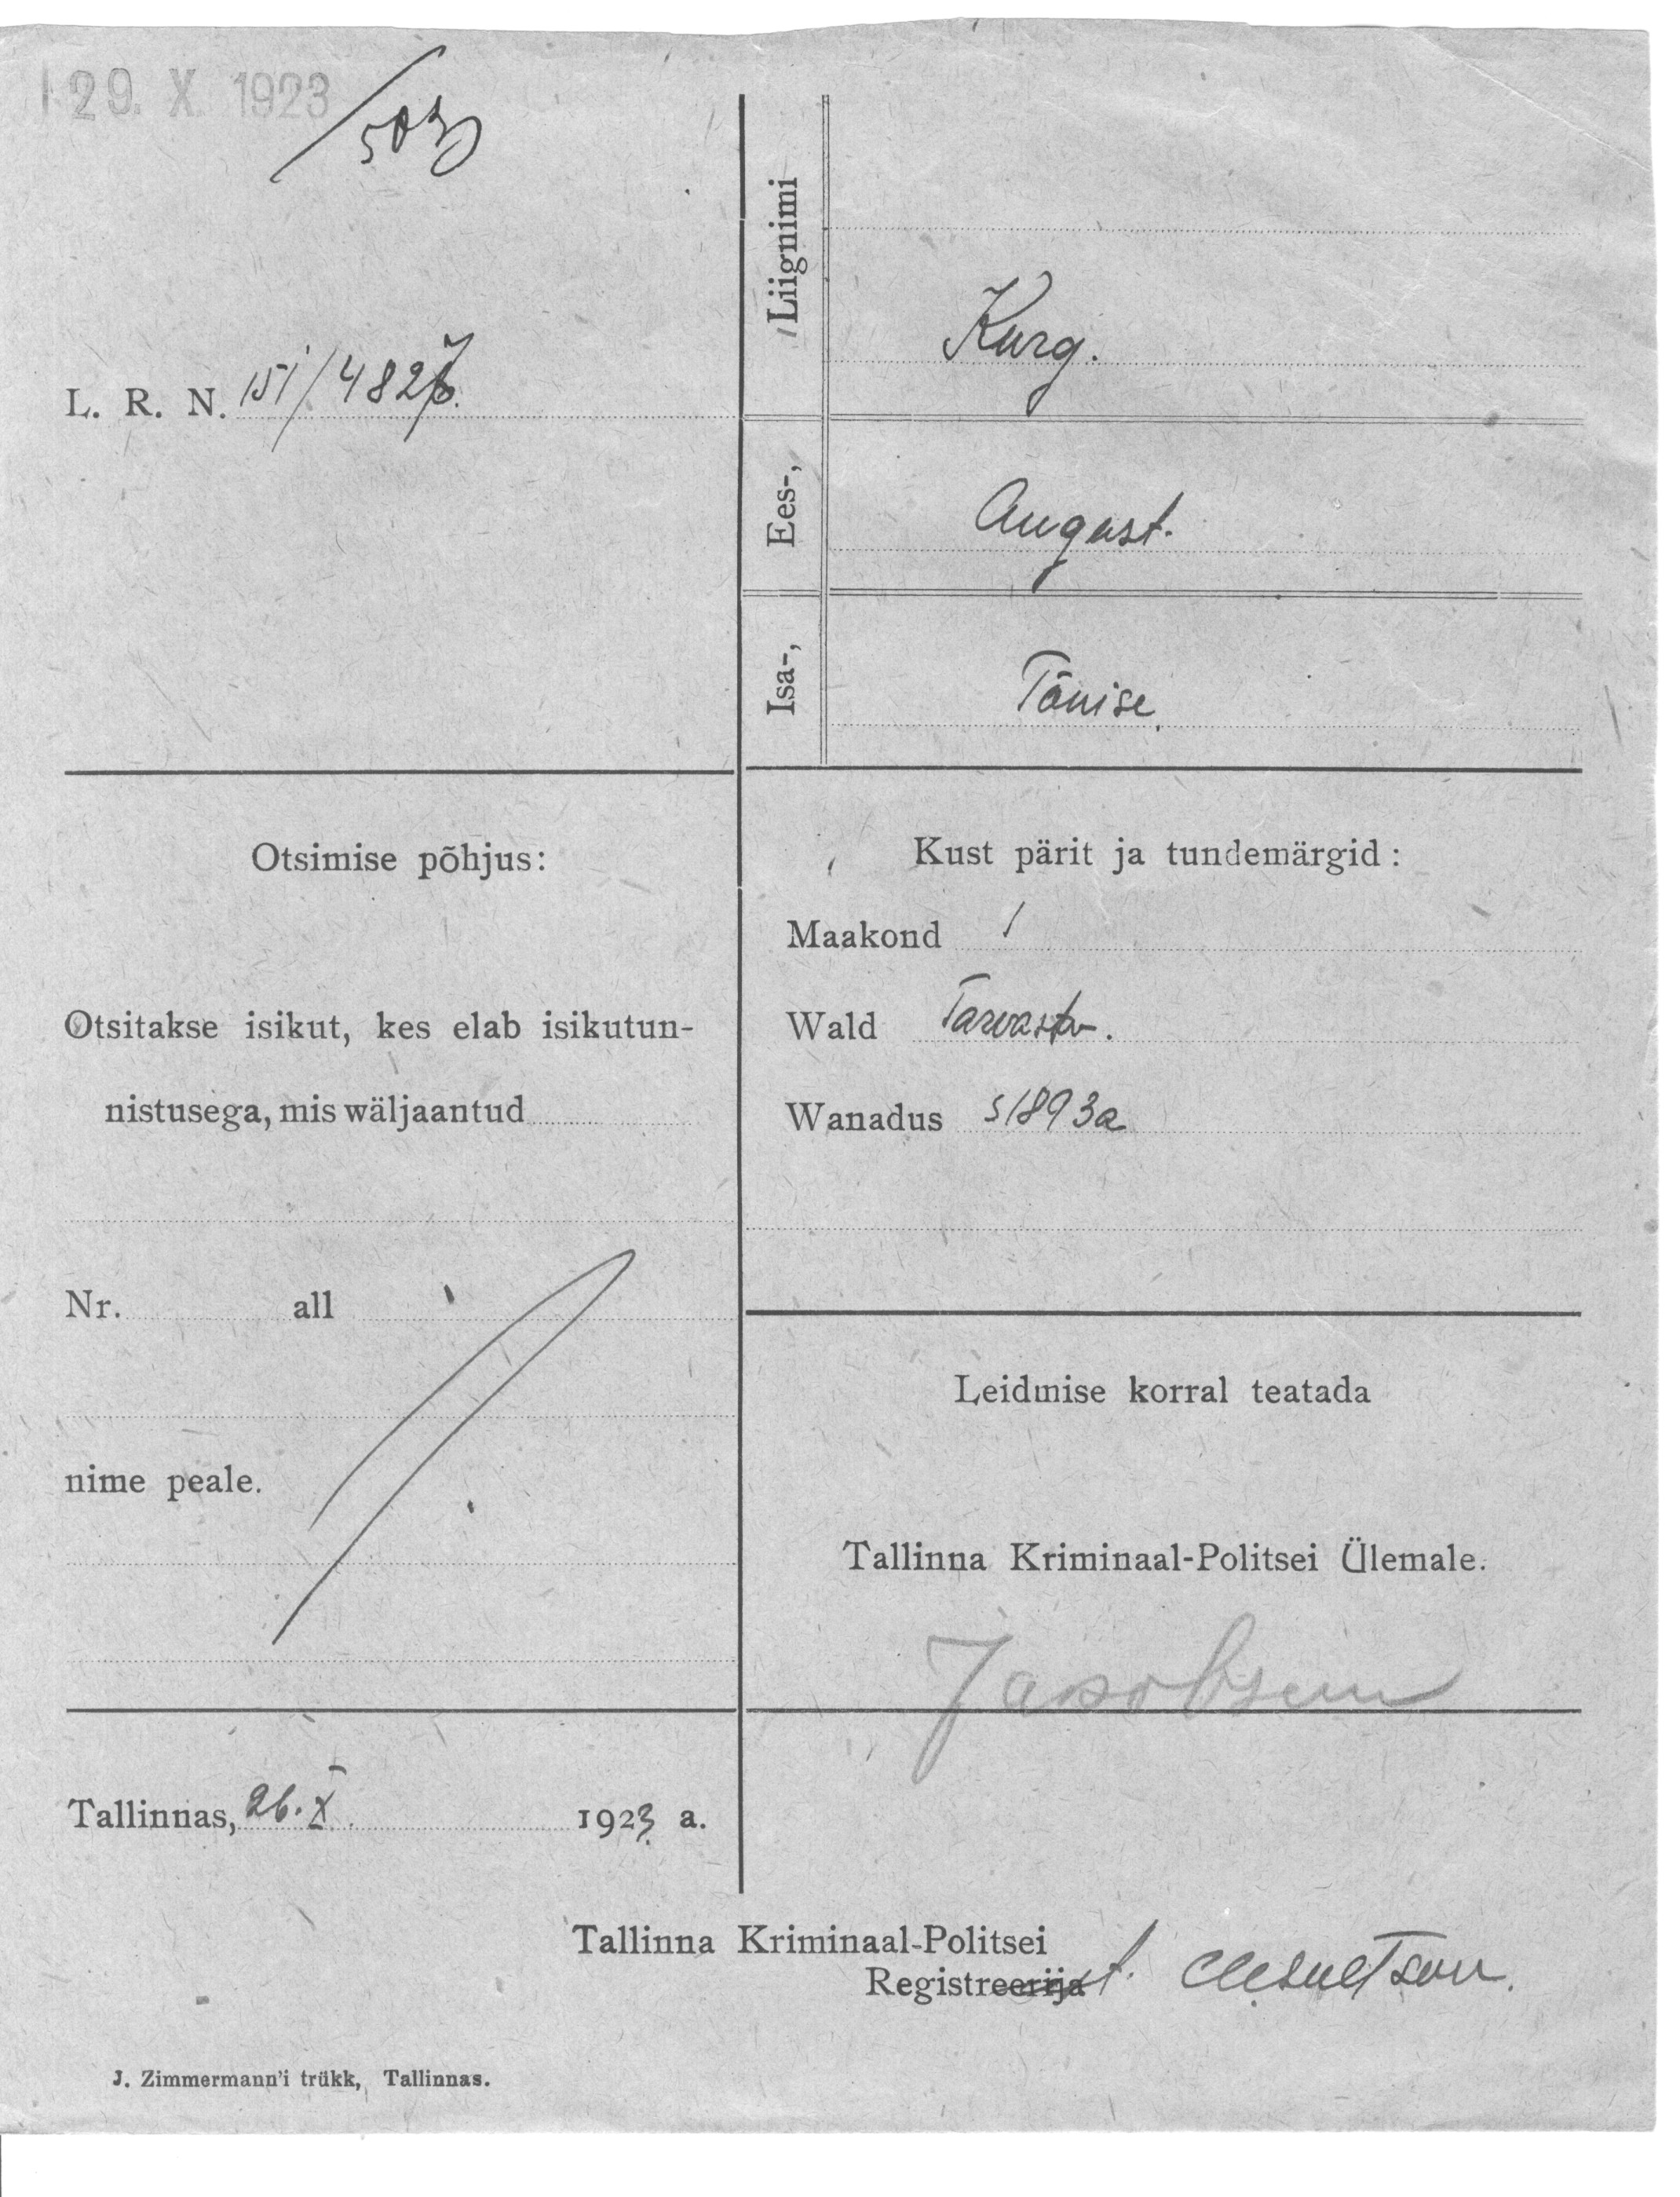 29. X 1923
503
L. R. N. 151/4827.
Liignimi
Kurg.
Ees-,
August.
Isa-,
Tõnise.
Otsimise põhjus:
Otsitakse isikut, kes elab isikutun-
nistusega, mis wäljaantud
Nr. all
nime peale.
Tallinnas, 26. X. 1923 a.
Kust pärit ja tundemärgid:
Maakond
Wald Tarvastu.
Wanadus s 1893 a
Leidmise korral teatada
Tallinna Kriminaal-Politsei Ülemale.
Jakobsen
Tallinna Kriminaal-Politsei
Registreerija
J. Zimmermann'i trükk, Tallinnas.